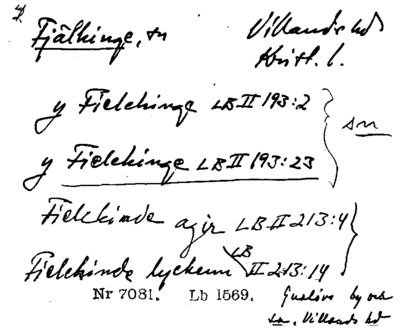 Fjälkinge, sn Villands hd
Krist. l.
y Fielckinge LB II 193:2
sn
y Fielckinge LB II 193:23
Fielckinde agir LB II 213:4
Fielckinde lyckenn LB II 213:14
Nr 7081. Lb 1569. Gualövs by och
sn, Villands hd